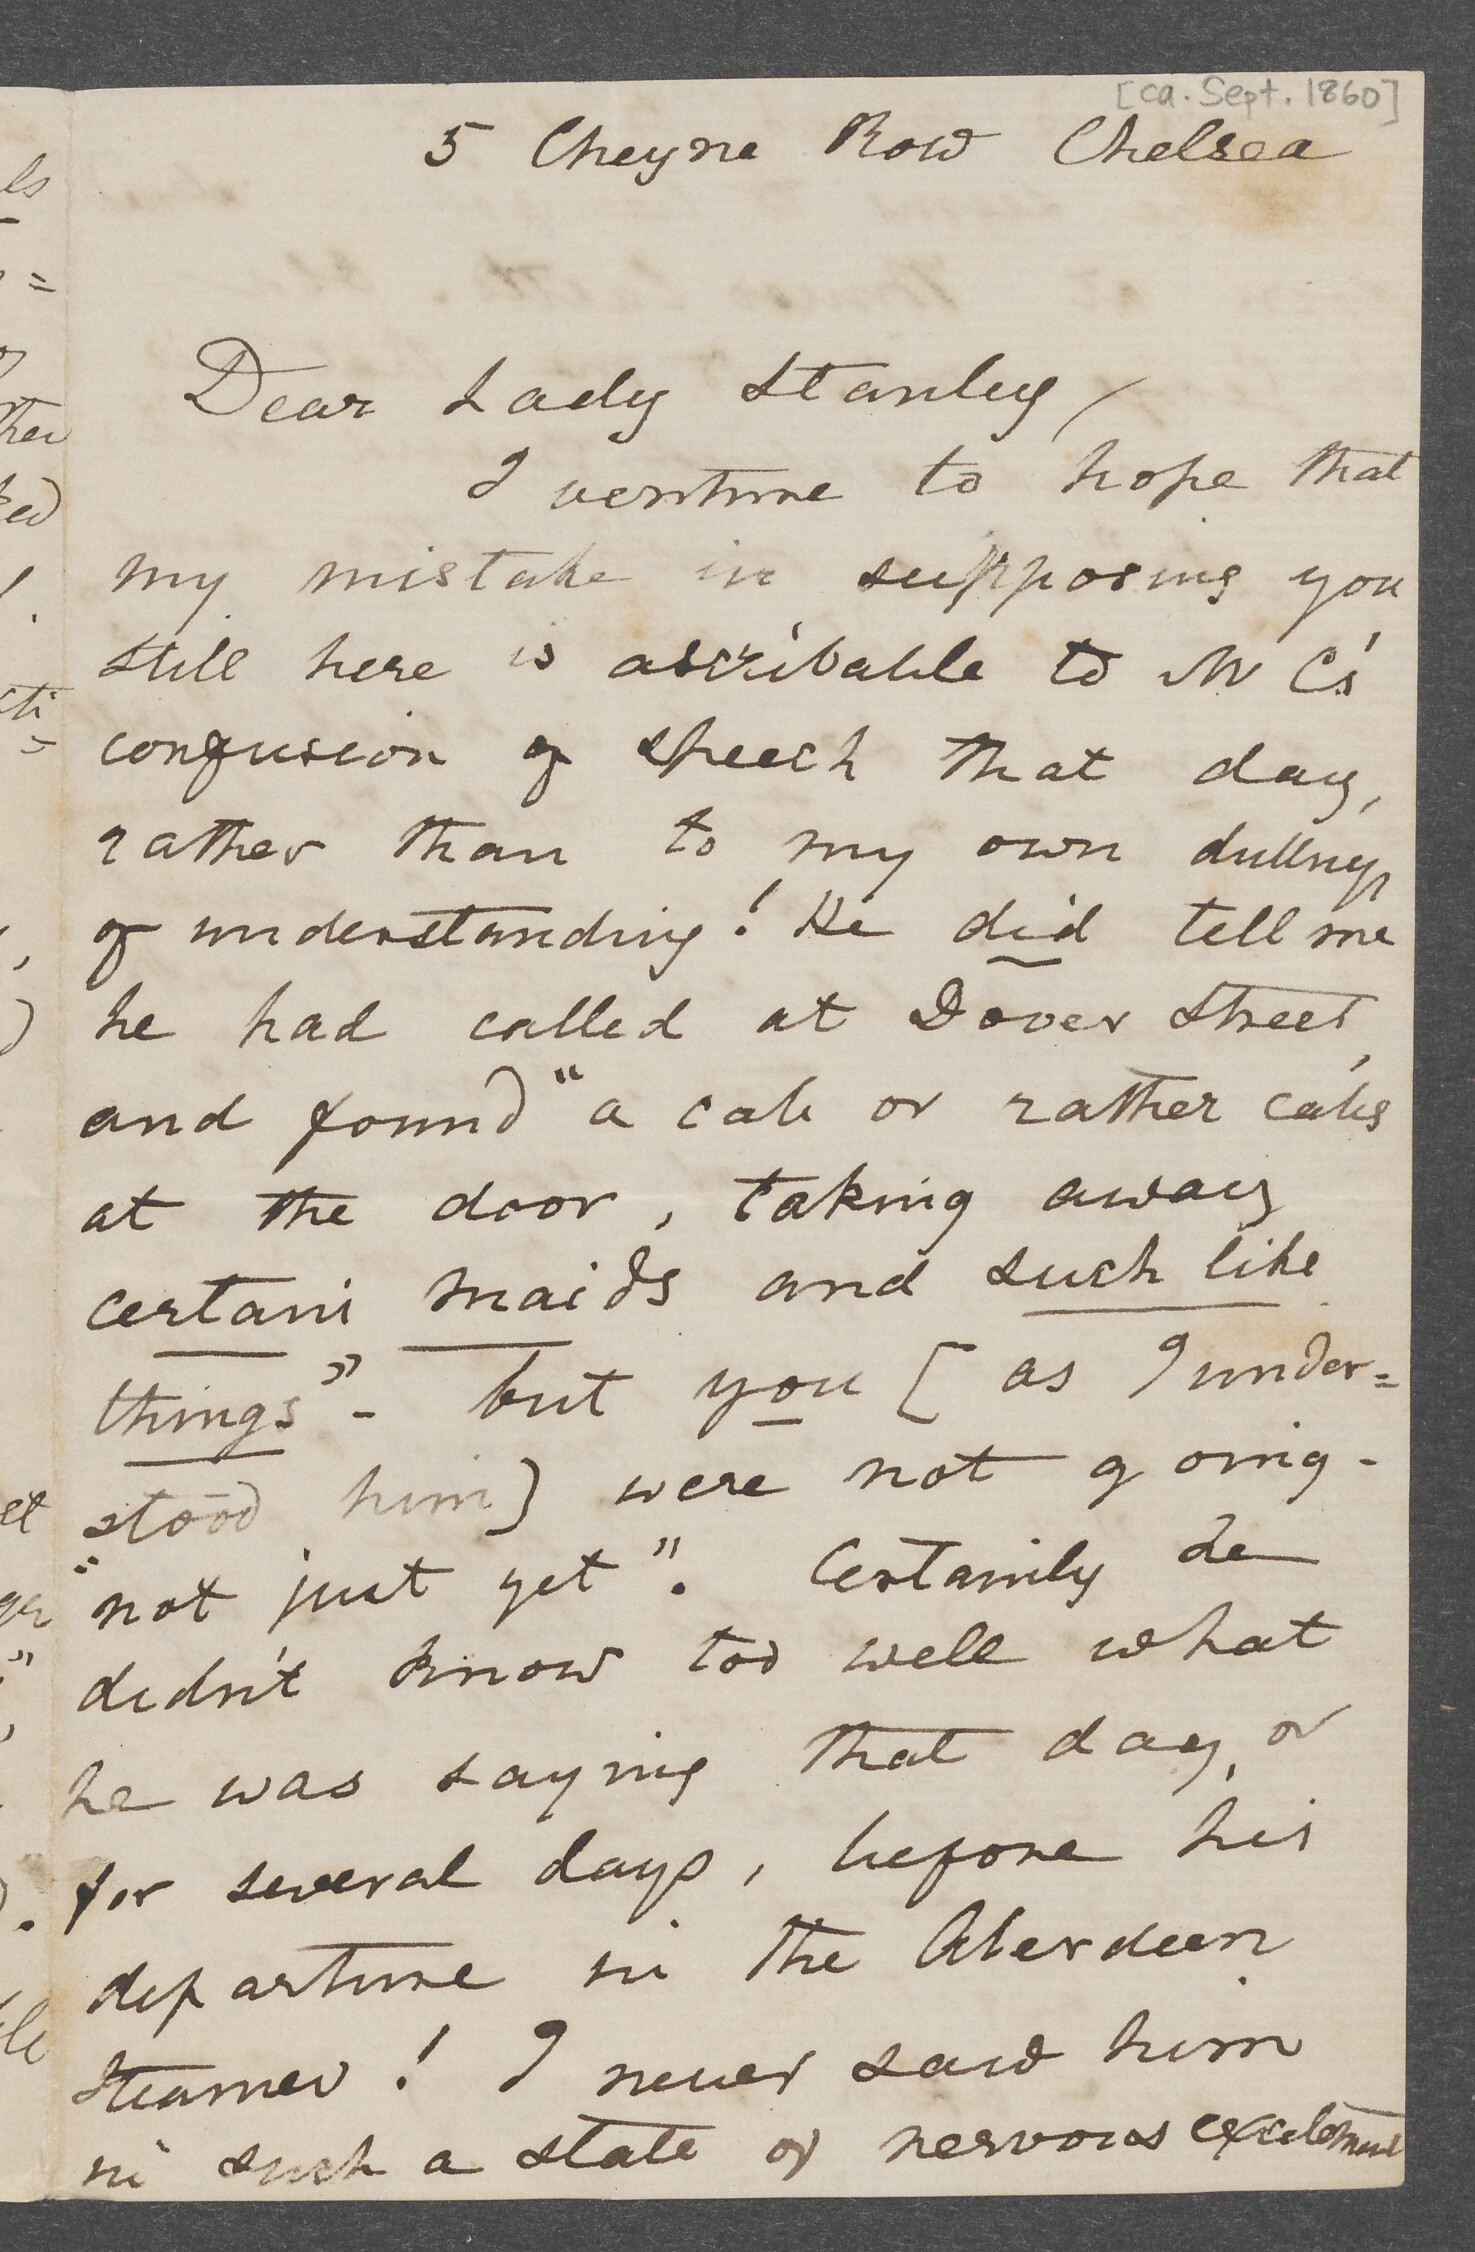 [ca. Sept. 1860]
5 Cheyne Row Chelsea
Dear Lady Stanley,
I venture to hope that
my mistake in supposing you
still here is ascribable to Mr C's
confusion of speech that day,
rather than to my own dullness
of understanding! He did tell me
he had called at Dover Street,
and found "a cab or rather cabs
at the door, taking away
certain maids and such like
things" - but you [as I under=
stood him] were not going -
"not just yet". Certainly he
didn't know too well what
he was saying that day, or
for several days, before his
departure in the Aberdeen
steamer! I never saw him
in such a state of nervous excitement